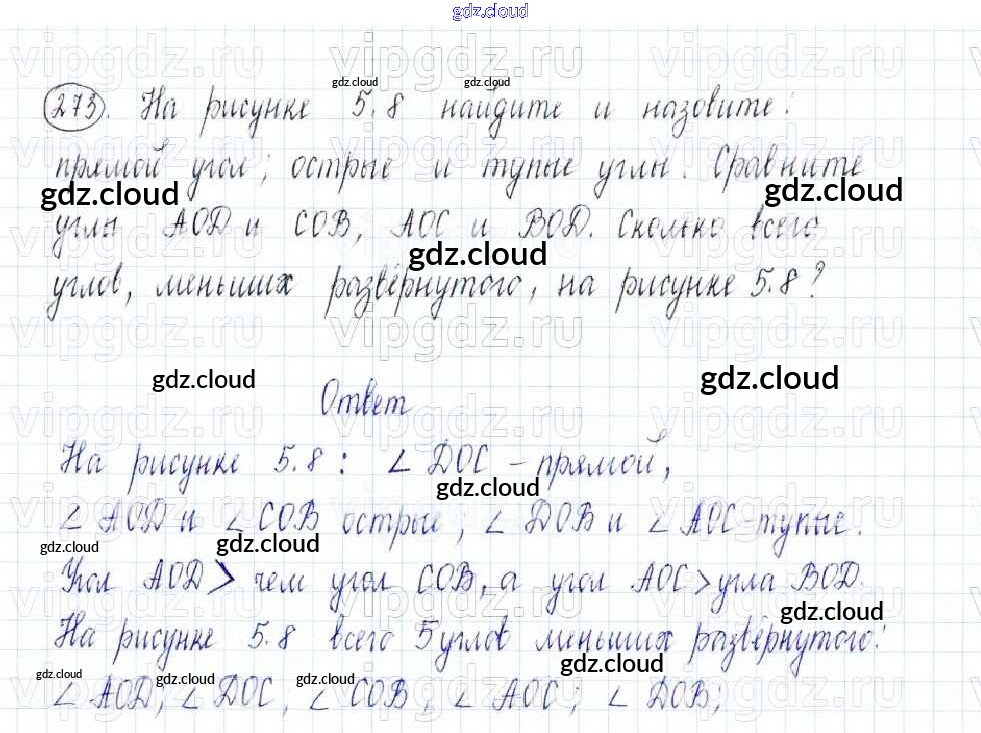 gdz.cloud
273. На рисунке 5.8 найдите и назовите:
прямой угол; острые и тупые углы. Сравните
углы AOD и COB, AOC и BOD. Сколько всего
углов, меньших развёрнутого, на рисунке 5.8?
Ответ
На рисунке 5.8: ∠ DOC – прямой,
∠ AOD и ∠ COB острые; ∠ DOB и ∠ AOC – тупые.
Угол AOD > чем угол COB, а угол AOC > угла BOD.
На рисунке 5.8 всего 5 углов меньших развёрнутого:
∠ AOD, ∠ DOC, ∠ COB, ∠ AOC; ∠ DOB;